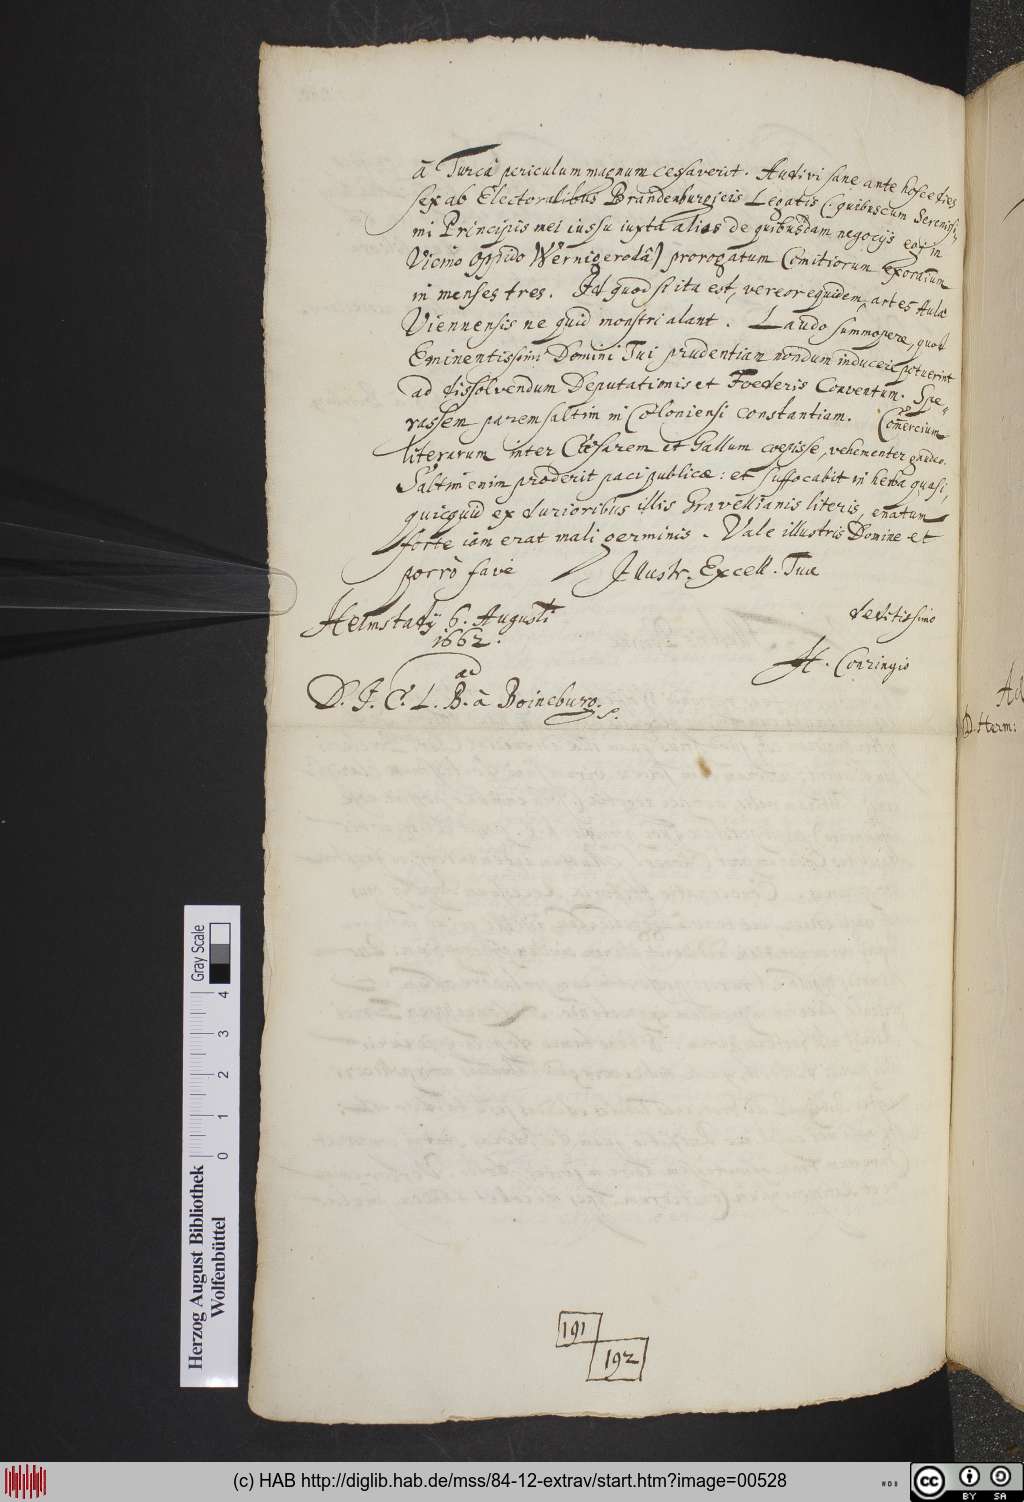 à Turcâ periculum magnum cessaverit. Audivi sane ante hosce dies
sex ab Electoralibus Brandenburgicis Legatis (quibuscum Serenissi-
mi Principis mei iussu iuxta alios de quibusdam negocijs egi in
Vicino oppido Wernigerodâ) prorogatum Comitiorum exoratum
in menses tres. Id quod si ita est, vereor equidem, artes Aulæ
Viennensis ne quid monstri alant. Laudo summopere, quod
Eminentissimi Domini Tui prudentiam nondum inducere potuerint
ad dissolvendum Deputationis et Foederis Conventum. Spe-
rassem parem saltim in Coloniensi constantiam. Com̃ercium
literarum inter Cæsarem et Gallum coepisse, vehementer gaudeo.
Saltim enim proderit paci publicæ: et suffocabit in herba quasi,
quicquid ex durioribus illis Gravellianis literis, enatum
forte iam erat mali germinis. Vale illustris Domine et
porrò fave Illustr. Excell. Tuæ
Helmstadij 6. Augusti
1662.
deditissimo
H. Conringio
ad
D. J. C. L. B. à Boineburg. S.
Ad
D. Herm:
191
192
Gray Scale
0 1 2 3 4
Herzog August Bibliothek
Wolfenbüttel
(c) HAB http://diglib.hab.de/mss/84-12-extrav/start.htm?image=00528
WDB
cc
BY SA